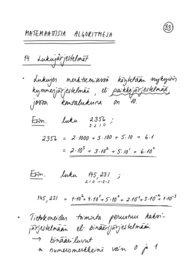 35
MATEMAATTISIA ALGORITMEJA
14 Lukujärjestelmät
• Lukujen merkitsemisessä käytetään nykyisin
kymmenjärjestelmää, eli paikkajärjestelmää,
jossa kantalukuna on 10.
Esim. luku 2356 ;
3 2 1 0
2356 = 2·1000 + 3·100 + 5·10 + 6·1
= 2·10³ + 3·10² + 5·10¹ + 6·10⁰
Esim. luku 145,231 ;
2 1 0 -1 -2 -3
145,231 = 1·10² + 4·10¹ + 5·10⁰ + 2·10⁻¹ + 3·10⁻² + 1·10⁻³
• Tietokoneiden toiminta perustuu kaksi-
järjestelmään eli binäärijärjestelmään
→ binääriluvut
numeromerkkeinä vain 0 ja 1